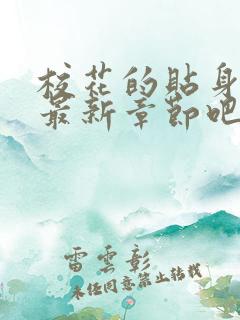 校花的貼身
最新章節吧
雷雲彰
未任同意禁止转载